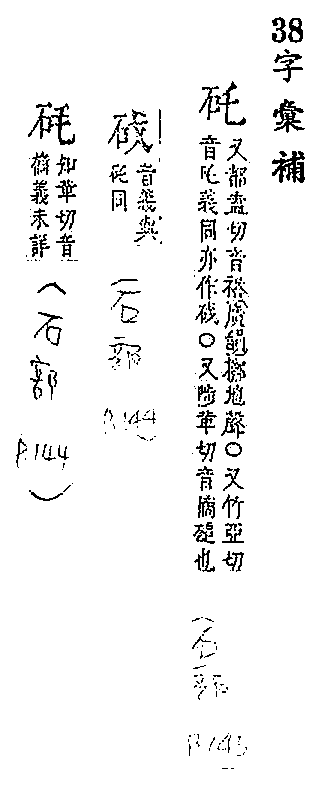 38 字彙補
矺
又都盍切音褡廣韻擲地聲○又竹亞切
音吒義同亦作○又陟革切音摘磓也
(石部 P.145
音義與
矺同
(石部 P.144)
知革切音
樀義未詳
(石部 P.144)